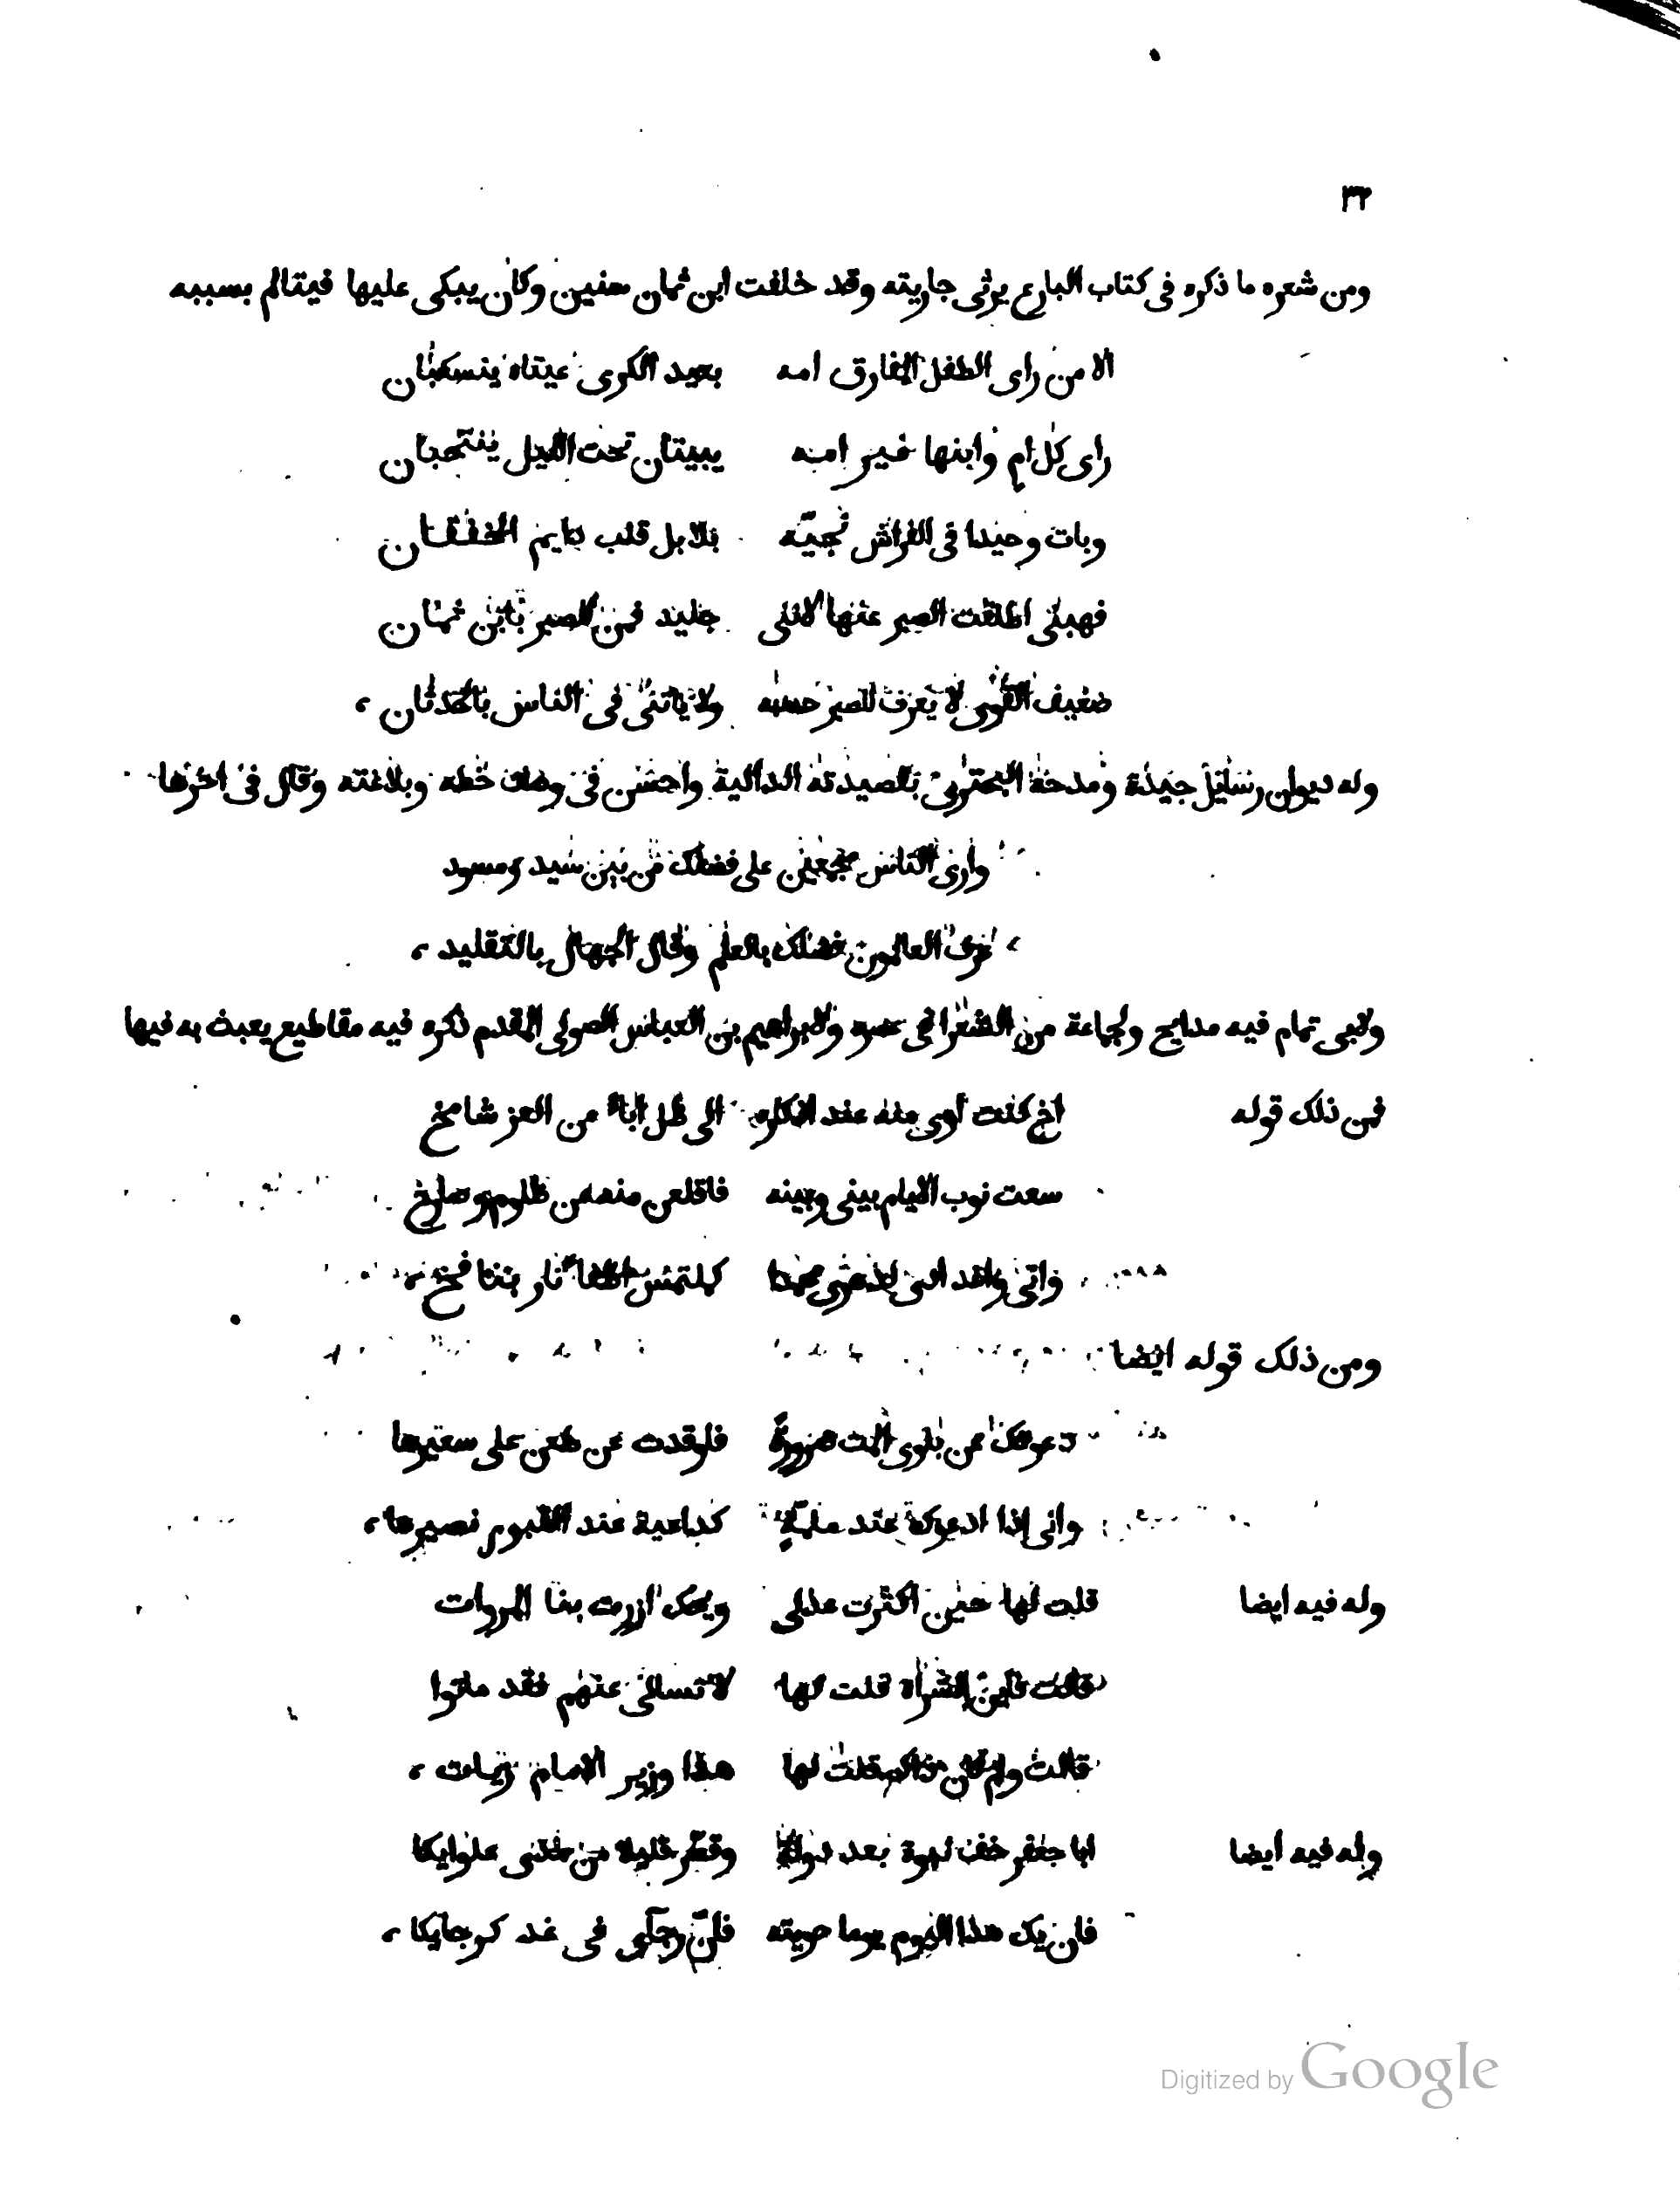 ٣٢
ومن شعره ما ذكره فى كتاب البارع يرثى جاريته وقد خلفت ابن ثمان سنين وكان يبكى عليها فيتالم بسببه
الا من راى الطفل المفارق امه بعيد الكرى عيناه ينسكبان
راى كل ام وابنها غير امه يبيتان تحت الليل ينتحبان
وبات وحيدا فى الفراش تجيبه بلابل قلب دايم الخفقان
فهبنى اطلقت الصبر عنها لاننى جليد فمن للصبر بابن ثمان
ضعيف القوى لا يعرف الصبر حسبه ولا ياتسى فى الناس بالحدثان ،
وله ديوان رسايل جيدة ومدحه البحترى بقصيدته الدالية واحسن فى وصف خطه وبلاغته وقال فى اخرها
وارى الناس مجمعين على فضلك من بين سيد ومسود
عرف العالمون فضلك بالعلم وقال الجهال بالتقليد ،
ولابى تمام فيه مدايح ولجماعة من الشعرا فى عصره ولابراهيم بن العباس الصولى المقدم ذكره فيه مقاطيع يعبث به فيها
فمن ذلك قوله اخ كنت اوى منه عند اذكاره الى ظل اباء من العز شامخ
سعت نوب الايام بينى وبينه فاقلعن منه عن ظلوم وصارخ
وانى واعد لدهرى محمدا كملتمس اطفاء نار بنافخ ،
ومن ذلك قوله ايضا
دعوتك عن بلوى المت ضرورة فاوقدت عن طعن على سعيرها
وانى اذا ادعوك عند ملمة كداعية عند القبور نصيرها ،
وله فيه ايضا قلت لها حين اكثرت عذلى ويحك ازرت بنا المروات
قالت فاين السراة قلت لها لا تسالى عنهم فقد ماتوا
قالت ولم كان ذاك قلت لها هذا وزير الامام زيات ،
وله فيه ايضا ابا جعفر خف نبوة بعد دولة وقصر قليلا من مدى غلوايكا
فان يك هذا اليوم يوما حويته فان رجآى فى غد كرجايكا ،
Digitized by Google